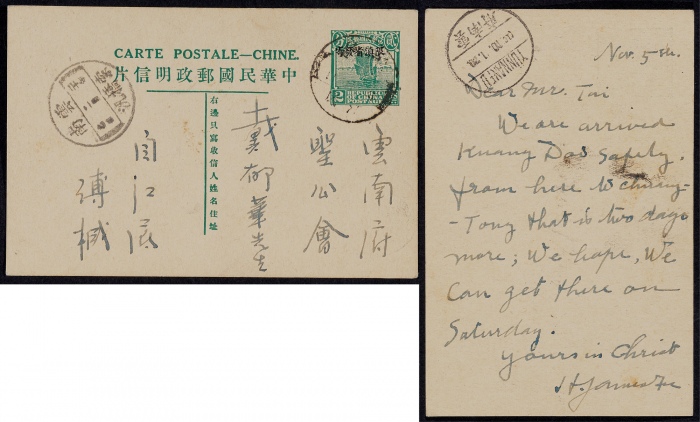 CARTE POSTALE—CHINE.
片信明政郵國民華中
2
REPUBLIC
OF CHINA
POSTAGE
2
右邊只寫收信人姓名住址
雲南府
聖公會
戴郁華先生
Nov. 5th.
Dear Mr. Tai
We are arrived
Kuang Dos Safely,
from here to chung-
-Tong that is two days
more; We hope, We
Can get there on
Saturday.
yours in Christ